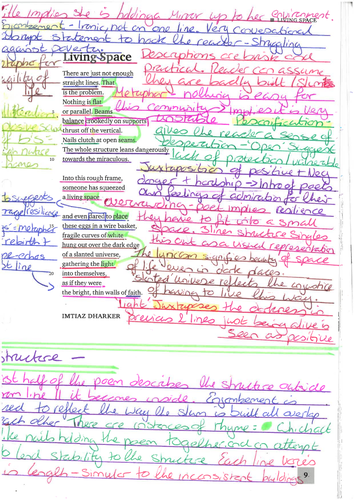 implies she is holding a mirror up to her environment.
LIVING SPACE
Enjambement - Ironic, not on one line. Very conversational
abrupt statement to hook the reader - Struggling
against poverty.
Living Space
There are just not enough
straight lines. That
is the problem.
Nothing is flat
or parallel. Beams
balance crookedly on supports
thrust off the vertical.
Nails clutch at open seams.
The whole structure leans dangerously
towards the miraculous.
Into this rough frame,
someone has squeezed
a living space
and even dared to place
these eggs in a wire basket,
fragile curves of white
hung out over the dark edge
of a slanted universe,
gathering the light
into themselves,
as if they were
the bright, thin walls of faith.
IMTIAZ DHARKER
Descriptions are bank and
practical. Reader can assume
they are badly built / slums
Metaphor - nothing is easy for
this community → Implies it's very
unstable Personification
gives the reader a sense of
desperation - 'Open' Suggests
lack of protection / vulnerable
Juxtaposition of positive + Neg
danger + hardship → Intro of poets
own feelings of admiration for their
overcrowding - Place implies resilience
they have to fit into a small
space. 3 lines structure singles
this out as a visual representation
of space
The lyricism signifies beauty
of life even in dark places.
Slanted universe reflects the injustice
of having to live this way.
'Light' Juxtaposes the darkness in
previous 2 lines just being alive is
seen as positive
suggests
metaphor
rebirth
echoes
st line
structure -
half of the poem describes the structure outside
from line 11 it becomes inside. Enjambement is
used to reflect the way the slum is built all overlap
each other There are instances of rhyme:
like nails holding the poem together and an attempt
to lend stability to the structure. Each line varies
in length - similar to the inconsistent buildings
9